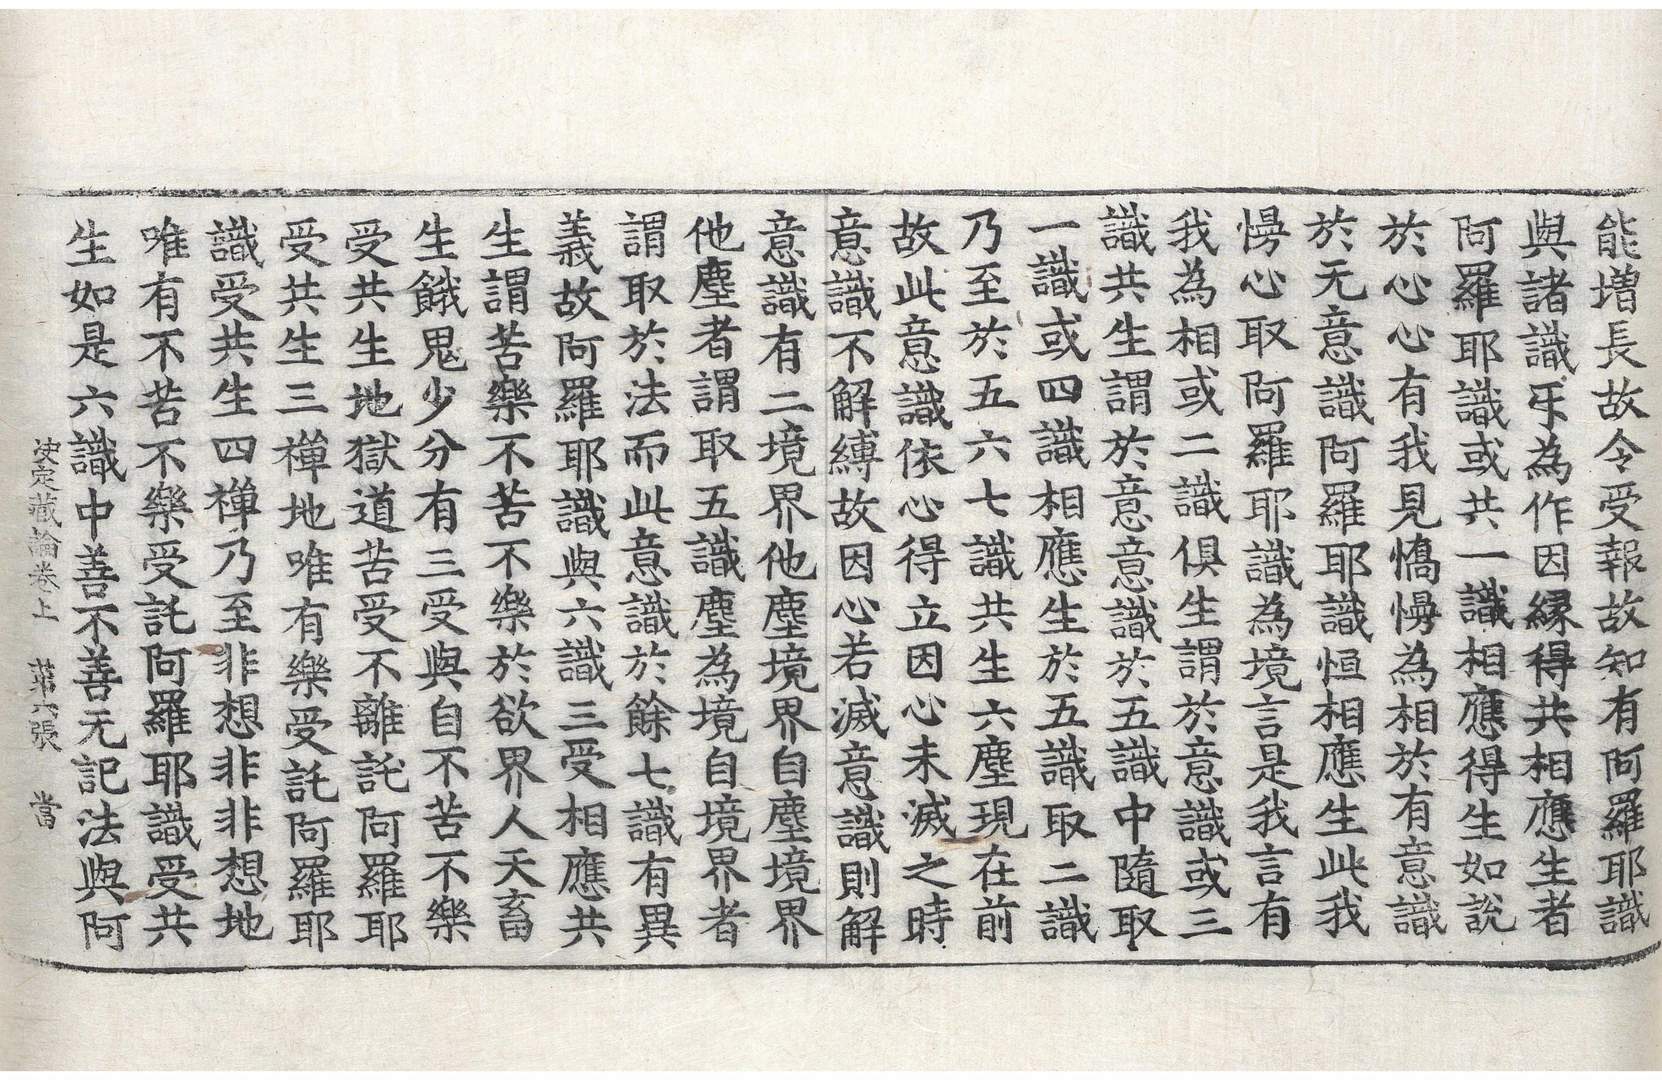 能增長故令受報故知有阿羅耶識
與諸識牙為作因緣得共相應生者
阿羅耶識或共一識相應得生如說
於心心有我見憍慢為相於有意識
於无意識阿羅耶識恒相應生此我
慢心取阿羅耶識為境言是我言有
我為相或二識俱生謂於意識或三
識共生謂於意意識於五識中隨取
一識或四識相應生於五識取二識
乃至於五六七識共生六塵現在前
故此意識依心得立因心未滅之時
意識不解縛故因心若滅意識則解
意識有二境界他塵境界自塵境界
他塵者謂取五識塵為境自境界者
謂取於法而此意識於餘七識有異
義故阿羅耶識與六識三受相應共
生謂苦樂不苦不樂於欲界人天畜
生餓鬼少分有三受與自不苦不樂
受共生地獄道苦受不離託阿羅耶
受共生三禪地唯有樂受託阿羅耶
識受共生四禪乃至非想非非想地
唯有不苦不樂受託阿羅耶識受共
生如是六識中善不善无記法與阿
決定藏論卷上 苐六張 當